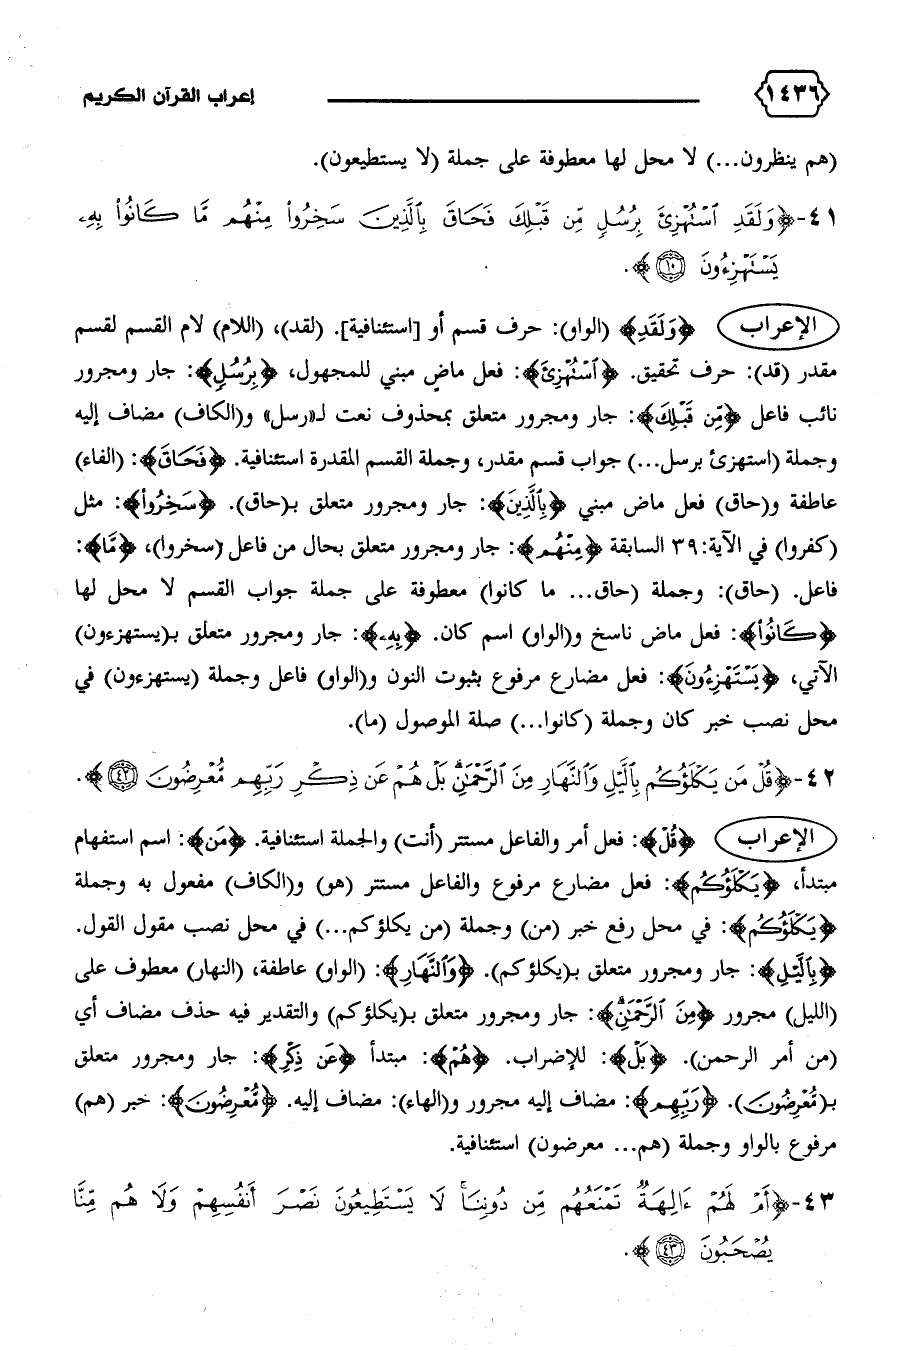 ١٤٣٦ إعراب القرآن الكريم
(هم ينظرون...) لا محل لها معطوفة على جملة (لا يستطيعون).
٤١-﴿وَلَقَدِ ٱسْتُهْزِئَ بِرُسُلٍ مِّن قَبْلِكَ فَحَاقَ بِٱلَّذِينَ سَخِرُوا۟ مِنْهُم مَّا كَانُوا۟ بِهِۦ
يَسْتَهْزِءُونَ ﴾.
الإعراب ﴿وَلَقَدِ﴾ (الواو): حرف قسم أو [استئنافية]. (لقد)، (اللام) لام القسم لقسم
مقدر (قد): حرف تحقيق. ﴿ٱسْتُهْزِئَ﴾: فعل ماضٍ مبني للمجهول، ﴿بِرُسُلٍ﴾: جار ومجرور
نائب فاعل ﴿مِّن قَبْلِكَ﴾: جار ومجرور متعلق بمحذوف نعت لـ«رسل» و(الكاف) مضاف إليه
وجملة (استهزئ برسل...) جواب قسم مقدر، وجملة القسم المقدرة استئنافية. ﴿فَحَاقَ﴾: (الفاء)
عاطفة و(حاق) فعل ماض مبني ﴿بِٱلَّذِينَ﴾: جار ومجرور متعلق بـ(حاق). ﴿سَخِرُوا۟﴾: مثل
(كفروا) في الآية: ٣٩ السابقة ﴿مِنْهُم﴾: جار ومجرور متعلق بحال من فاعل (سخروا)، ﴿مَّا﴾:
فاعل. (حاق): وجملة (حاق... ما كانوا) معطوفة على جملة جواب القسم لا محل لها
﴿كَانُوا۟﴾: فعل ماض ناسخ و(الواو) اسم كان. ﴿بِهِۦ﴾: جار ومجرور متعلق بـ(يستهزءون)
الآتي، ﴿يَسْتَهْزِءُونَ﴾: فعل مضارع مرفوع بثبوت النون و(الواو) فاعل وجملة (يستهزءون) في
محل نصب خبر كان وجملة (كانوا...) صلة الموصول (ما).
٤٢-﴿قُلْ مَن يَكْلَؤُكُم بِٱلَّيْلِ وَٱلنَّهَارِ مِنَ ٱلرَّحْمَٰنِ ۗ بَلْ هُمْ عَن ذِكْرِ رَبِّهِم مُّعْرِضُونَ ٤٢﴾.
الإعراب ﴿قُلْ﴾: فعل أمر والفاعل مستتر (أنت) والجملة استئنافية. ﴿مَن﴾: اسم استفهام
مبتدأ، ﴿يَكْلَؤُكُم﴾: فعل مضارع مرفوع والفاعل مستتر (هو) و(الكاف) مفعول به وجملة
﴿يَكْلَؤُكُم﴾: في محل رفع خبر (من) وجملة (من يكلؤكم...) في محل نصب مقول القول.
﴿بِٱلَّيْلِ﴾: جار ومجرور متعلق بـ(يكلؤكم). ﴿وَٱلنَّهَارِ﴾: (الواو) عاطفة، (النهار) معطوف على
(الليل) مجرور ﴿مِنَ ٱلرَّحْمَٰنِ ۗ﴾: جار ومجرور متعلق بـ(يكلؤكم) والتقدير فيه حذف مضاف أي
(من أمر الرحمن). ﴿بَلْ﴾: للإضراب. ﴿هُمْ﴾: مبتدأ ﴿عَن ذِكْرِ﴾: جار ومجرور متعلق
بـ(مُّعْرِضُونَ). ﴿رَبِّهِم﴾: مضاف إليه مجرور و(الهاء): مضاف إليه. ﴿مُّعْرِضُونَ﴾: خبر (هم)
مرفوع بالواو وجملة (هم... معرضون) استئنافية.
٤٣-﴿أَمْ لَهُمْ ءَالِهَةٌ تَمْنَعُهُم مِّن دُونِنَا ۚ لَا يَسْتَطِيعُونَ نَصْرَ أَنفُسِهِمْ وَلَا هُم مِّنَّا
يُصْحَبُونَ ٤٣﴾.